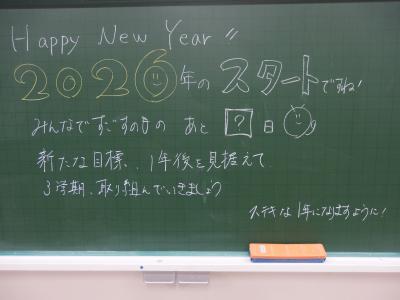 Happy New Year"
2026年のスタートですね!
みんなですごすのも あと ? 日
新たな目標、1年後を見据えて
3学期、取り組んでいきましょう
ステキな1年になりますように!